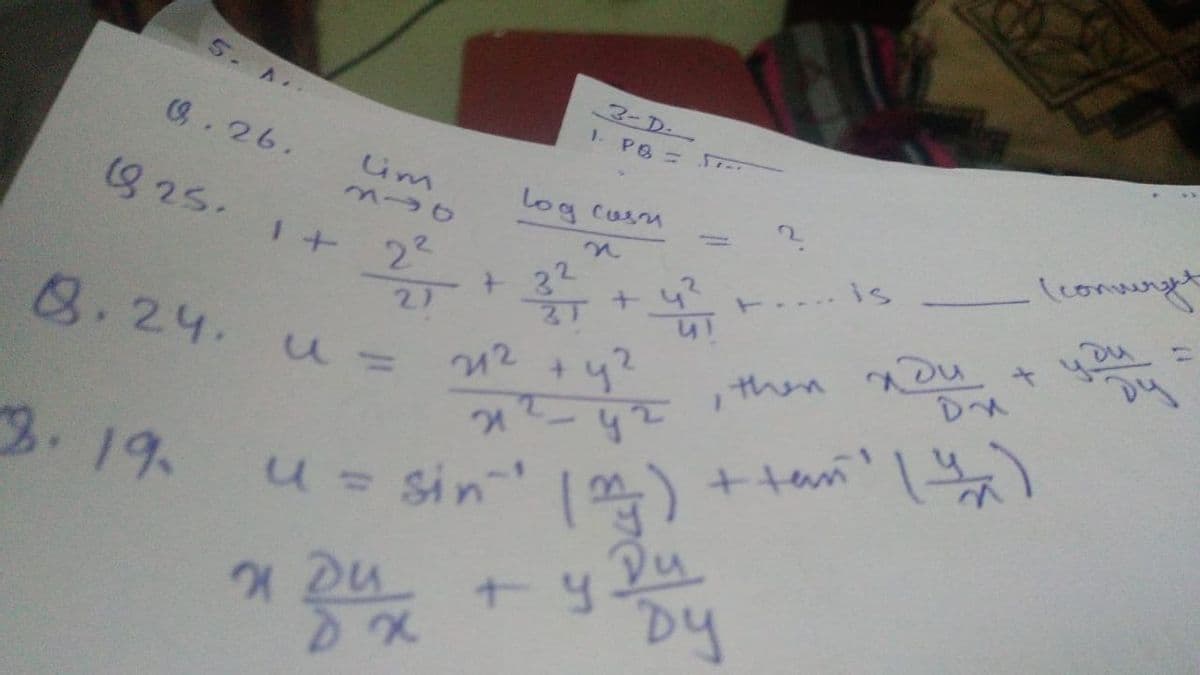 3-D.
1. PQ =
Q.26. lim x→0 log cosx / x = ?
Q25. 1 + 2²/2! + 3²/3! + 4²/4! + ..... is ___ (convergent
Q.24. u = x² + y² / x² - y² , then x ∂u/∂x + y ∂u/∂y =
Q.19. u = sin⁻¹ (x/y) + tan⁻¹ (y/x)
x ∂u/∂x + y ∂u/∂y